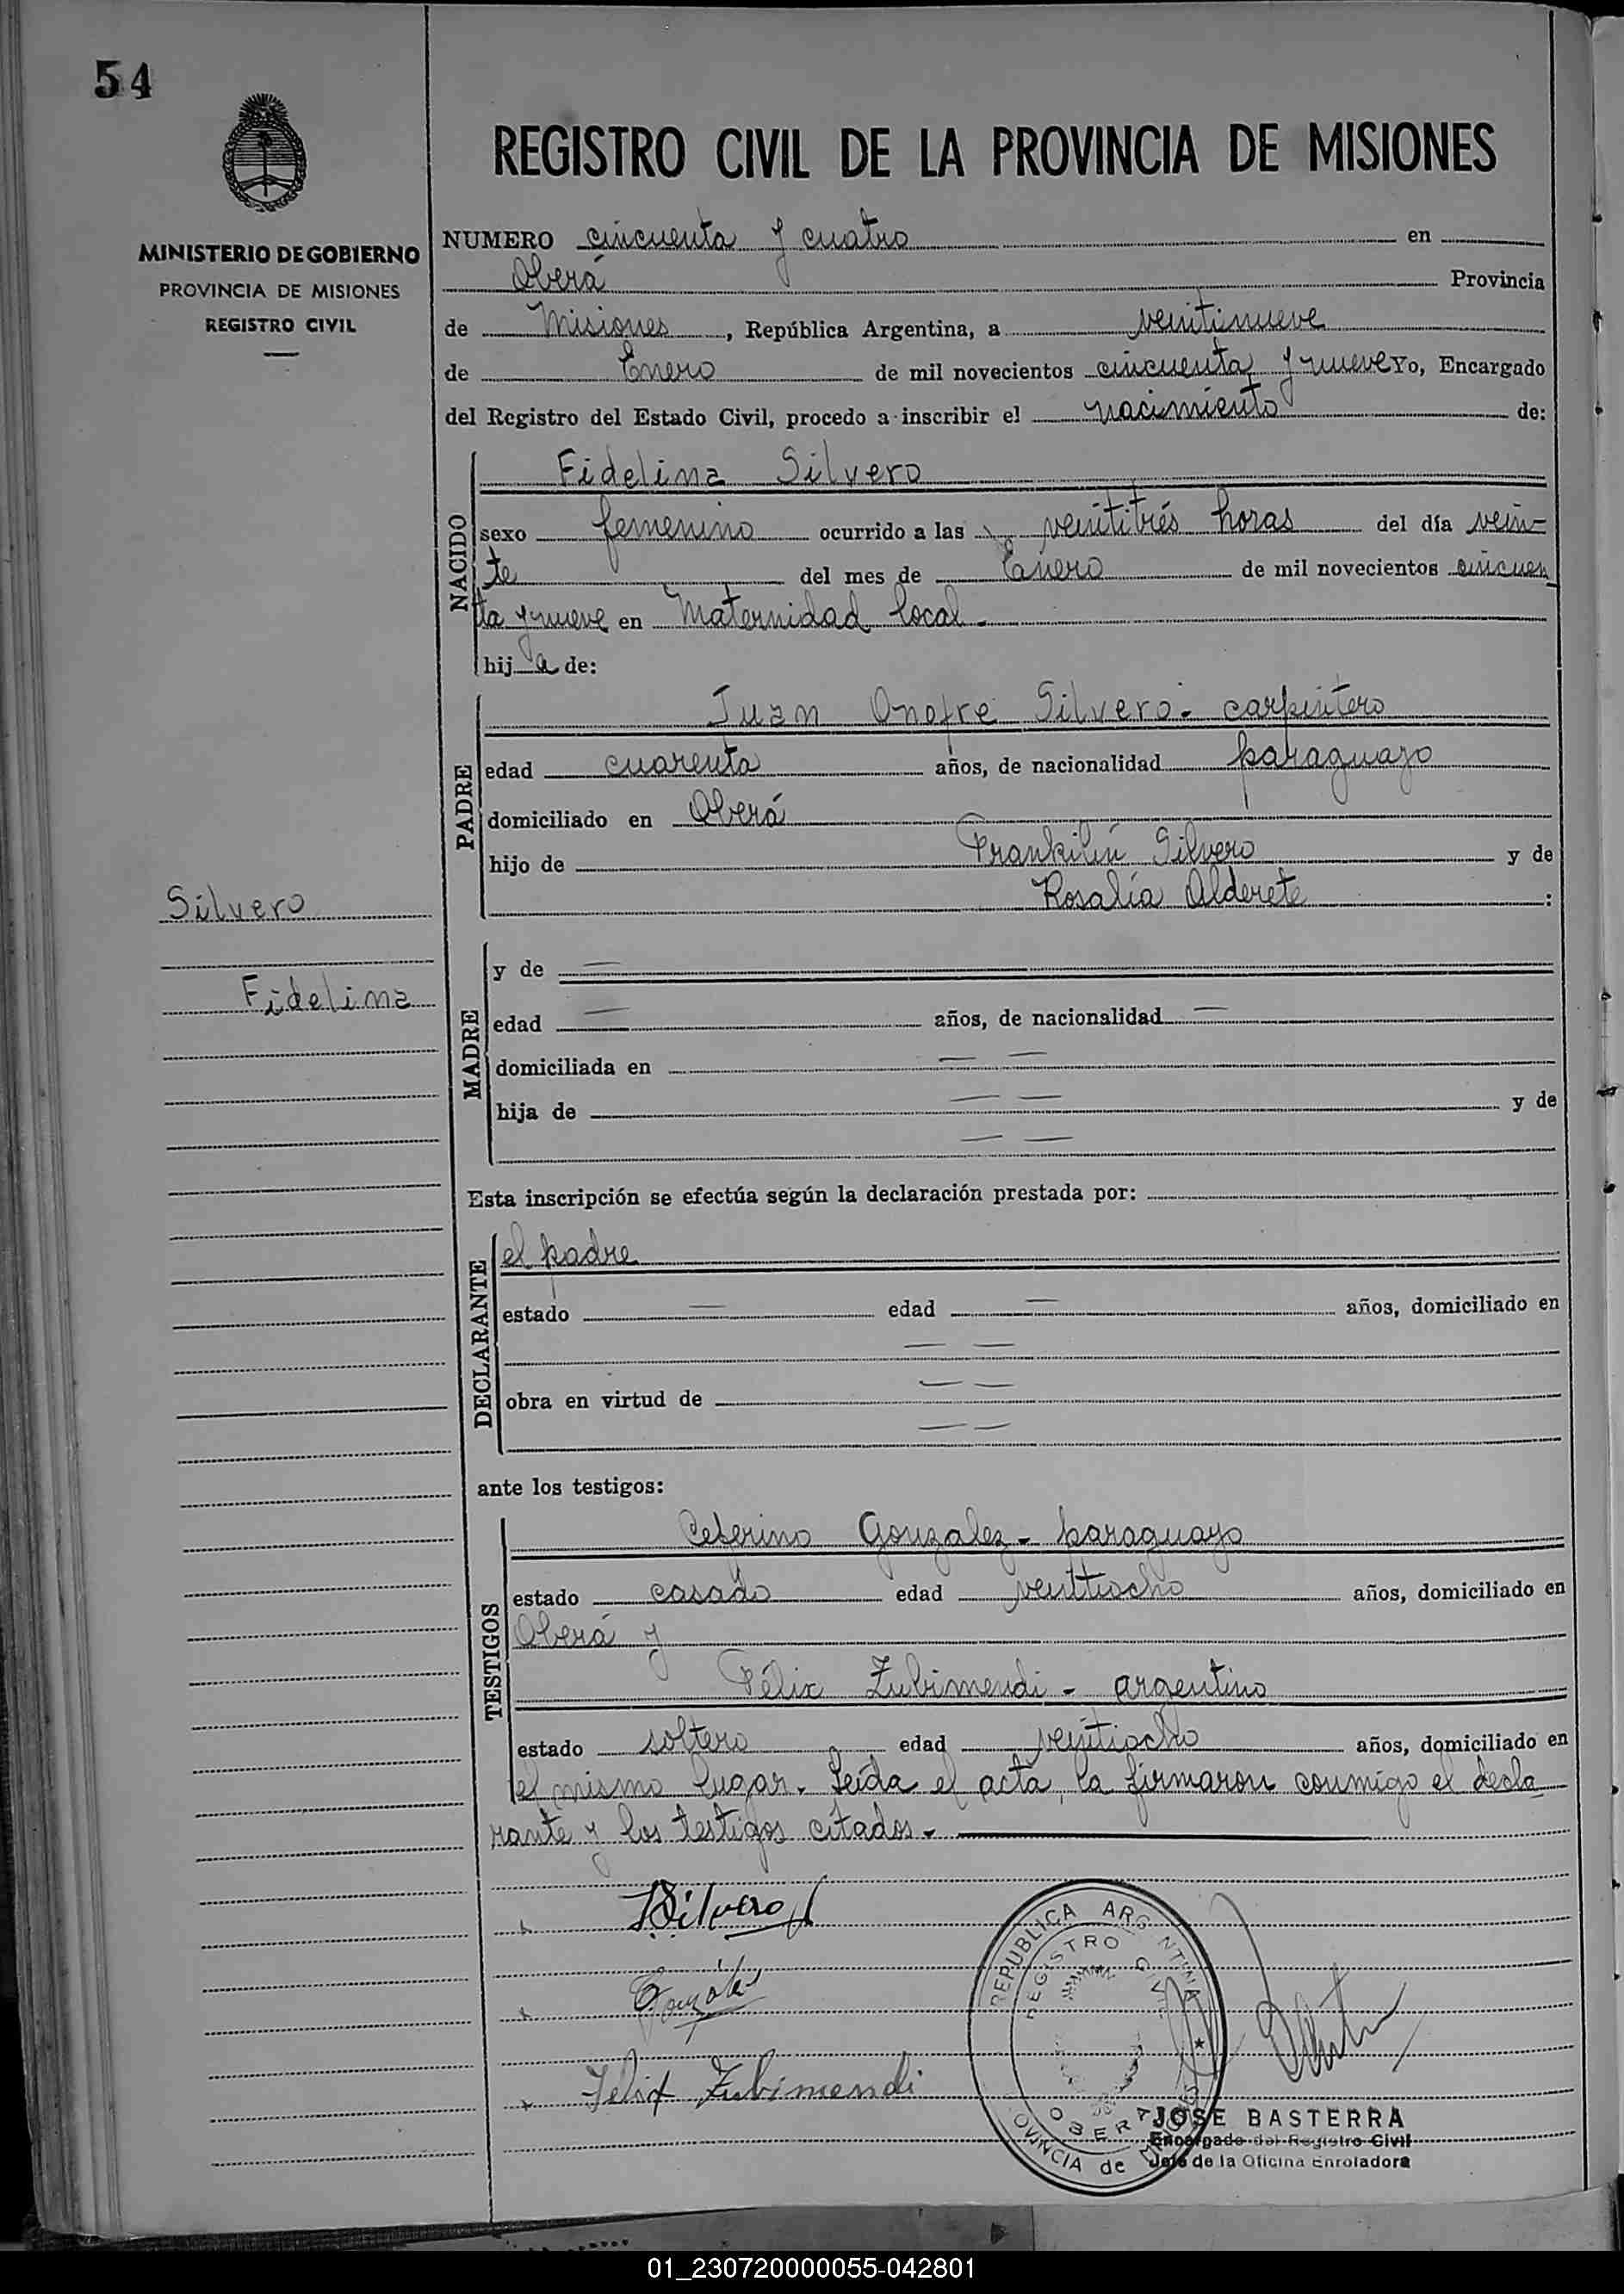 54
REGISTRO CIVIL DE LA PROVINCIA DE MISIONES
MINISTERIO DE GOBIERNO
PROVINCIA DE MISIONES
REGISTRO CIVIL
NUMERO cincuenta y cuatro en
Oberá Provincia
de Misiones, República Argentina, a veintinueve
de Enero de mil novecientos cincuenta y nueve Yo, Encargado
del Registro del Estado Civil, procedo a inscribir el nacimiento de:
NACIDO
Fidelina Silvero
sexo femenino ocurrido a las veintitrés horas del día vein=
te del mes de Enero de mil novecientos cincuen
ta y nueve en Maternidad local.
hij a de:
PADRE
Juan Onofre Silvero - carpintero
edad cuarenta años, de nacionalidad paraguayo
domiciliado en Oberá
hijo de Frankilin Silvero y de
Rosalía Alderete :
Silvero
Fidelina
MADRE
y de —
edad — años, de nacionalidad —
domiciliada en — —
hija de — — y de
— —
Esta inscripción se efectúa según la declaración prestada por:
DECLARANTE
el padre
estado — edad — años, domiciliado en
— —
obra en virtud de — —
— —
ante los testigos:
TESTIGOS
Ceferino Gonzalez - paraguayo
estado casado edad veintiocho años, domiciliado en
Oberá y
Félix Zubimendi - argentino
estado soltero edad veintiocho años, domiciliado en
el mismo lugar. Leída el acta, la firmaron conmigo el decla
rante y los testigos citados.
Silvero
González
Felix Zubimendi
REPUBLICA ARGENTINA
REGISTRO CIVIL
OBERA
PROVINCIA de MISIONES
JOSE BASTERRA
Encargado del Registro Civil
Jefe de la Oficina Enroladora
01_230720000055-042801